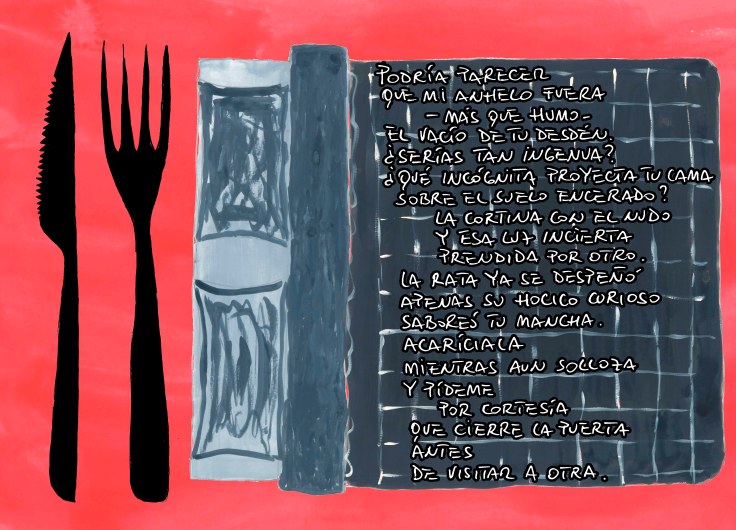 PODRÍA PARECER
QUE MI ANHELO FUERA
- MÁS QUE HUMO -
EL VACÍO DE TU DESDÉN.
¿SERÍAS TAN INGENUA?
¿QUÉ INCÓGNITA PROYECTA TU CAMA
SOBRE EL SUELO ENCERADO?
LA CORTINA CON EL NUDO
Y ESA LUZ INCIERTA
PRENDIDA POR OTRO.
LA RATA YA SE DESPEÑÓ
APENAS SU HOCICO CURIOSO
SABOREÓ TU MANCHA.
ACARÍCIALA
MIENTRAS AUN SOLLOZA
Y PÍDEME
POR CORTESÍA
QUE CIERRE LA PUERTA
ÁNTES
DE VISITAR A OTRA.